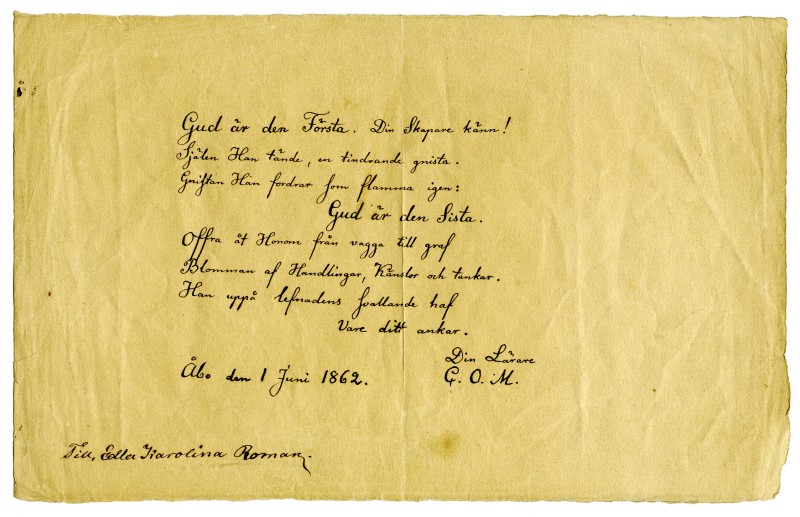 Gud är den Första. Din Skapare känn!
Själen Han tände, en tindrande gnista.
Gnistan Han fordrar som flamma igen:
Gud är den Sista.
Offra åt Honom från vagga till graf
Blomman af Handlingar, Känslor och tankar.
Han uppå lefnadens svallande haf
Vare ditt ankar.
Din Lärare
Åbo den 1 Juni 1862. G. O. M.
Till, Edla Karolina Roman.